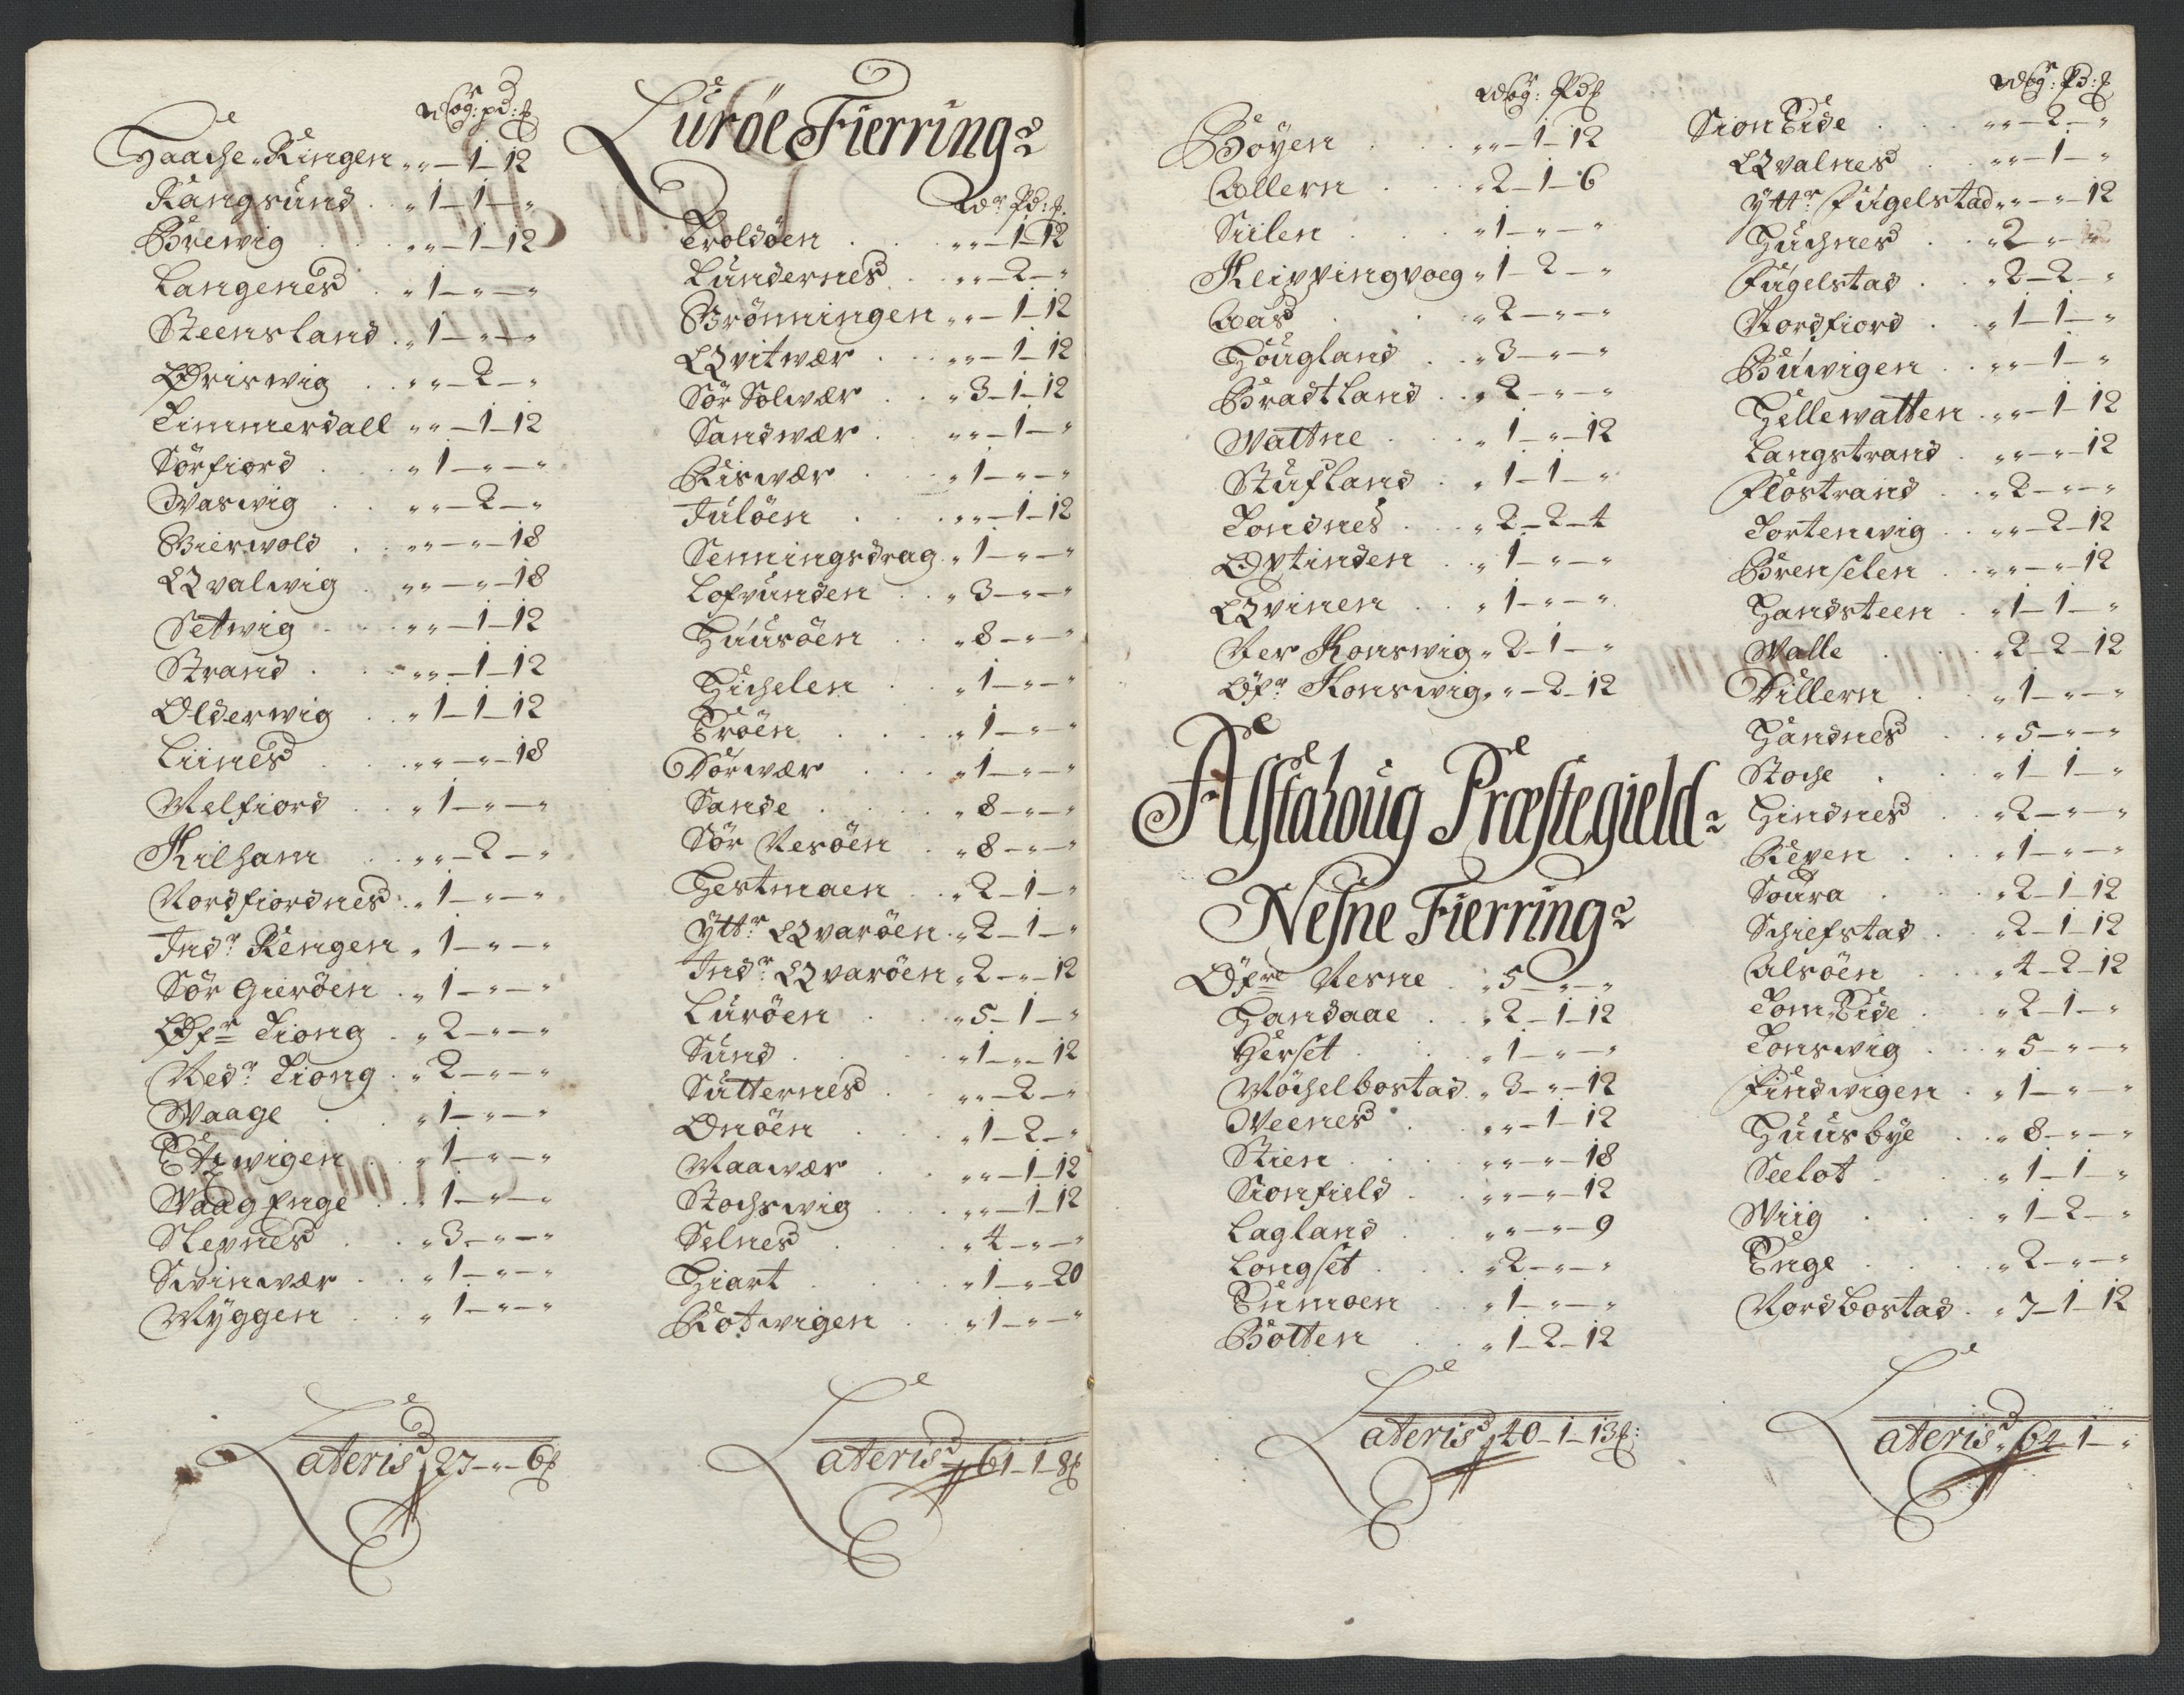 Wog: pd: ƒ
Haache Ringen „ „ — 1 — 12
Rangsund . „ 1 — 1 — „
Brewig . . „ „ — 1 — 12
Langenes . „ 1 — „ — „
Steensland . „ 1 — „ — „
Øriswig . . „ „ — 2 — „
Timmerdall „ „ — 1 — 12
Sörfiord . . „ 1 — „ — „
Waswig . . „ „ — 2 — „
Bierwold . . „ „ — „ — 18
Qvalwig . „ „ — „ — 18
Setwig . . „ „ — 1 — 12
Strand . . „ „ — 1 — 12
Olderwig . . „ 1 — 1 — 12
Liines . . „ „ — „ — 18
Melfiord . . „ 1 — „ — „
Kilham . . „ „ — 2 — „
Nordfiordnes . „ 1 — „ — „
Indr Rengen „ 1 — „ — „
Sör Gieröen . „ 1 — „ — „
Øfr Tiong . „ 2 — „ — „
Nedr Tiong . „ 2 — „ — „
Waage . . „ 1 — „ — „
Etzwigen . . „ 1 — „ — „
Waag Enge . . „ 1 — „ — „
Slepnes . . „ 3 — „ — „
Swinwær . . „ 1 — „ — „
Myggen . . „ 1 — „ — „
Lateris „ 27 — „ — 6 ƒ
Luröe Fierring
Wdr Pd: ƒ.
Troldöen . . „ „ — 1 — 12
Lundernes . . „ „ — 2 — „
Brönningen „ „ — 1 — 12
Qvitwær . . „ „ — 1 — 12
Sör Solwær . . „ 3 — 1 — 12
Sandwær . . „ „ — 1 — „
Riswær . . „ 1 — „ — „
Julöen . . „ „ — 1 — 12
Senningsdrag . „ 1 — „ — „
Lofvunden . . „ 3 — „ — „
Huusöen . . „ 8 — „ — „
Hichelen . . „ 1 — „ — „
Eröen . . . „ 1 — „ — „
Sörwær . . „ 1 — „ — „
Sande . . „ 8 — „ — „
Sör Nesöen . „ 8 — „ — „
Hestmaen . . „ 2 — 1 — „
Yttr Qvaröen . „ 2 — 1 — „
Indr Qvaröen „ 2 — „ — 12
Luröen . . „ 5 — 1 — „
Sund . . . „ 1 — „ — 12
Sutternes . . „ „ — 2 — „
Onöen . . „ 1 — 2 — „
Maawær . . „ „ — 1 — 12
Stochswig . . „ „ — 1 — 12
Selnes . . „ 4 — „ — „
Hiart . . . „ 1 — „ — 20
Rotwigen . . „ 1 — „ — „
Lateris „ 61 — 1 — 8 ƒ
Wog: Pd ƒ
Böyen . . „ „ — 1 — 12
Allern . . „ 2 — 1 — 6
Siilen . . „ 1 — „ — „
Kleippingvoeg „ 1 — 2 — „
Aas . . „ 2 — „ — „
Hougland . . „ 3 — „ — „
Bradtland . . „ 2 — „ — „
Wattne . . „ 1 — „ — 12
Stufland . „ 1 — 1 — „
Tondnes . . „ 2 — 2 — 4
Øxtinden . . „ 1 — „ — „
Qvinen . . „ 1 — „ — „
Ner Konswig „ 2 — 1 — „
Øfr Konswig „ „ — 2 — 12
Alstahoug Præstegield
Nesne Fierring
Øfre Nesne . „ 5 — „ — „
Handaae . . „ 2 — 1 — 12
Herset . . „ 1 — „ — „
Möchelbostad . „ 3 — „ — 12
Weenes . . „ „ — 1 — 12
Stien . . . „ „ — „ — 18
Sionfield . . „ „ — „ — 12
Lagland . . „ „ — „ — 9
Longset . . „ 2 — „ — „
Enmoen . . „ 1 — „ — „
Botten . . „ 1 — 2 — 12
Lateris „ 40 — 1 — 13 ƒ:
Wog: Pd: ƒ
Sion Eide . . „ „ — 2 — „
Qvalnes . . „ „ — 1 — „
Yttr Fugelstad „ „ — „ — 12
Huchnes . . „ 2 — „ — „
Fugelstad . . „ 2 — 2 — „
Nordfiord . . „ 1 — 1 — „
Buwigen . . „ „ — 1 — „
Hellewatten . „ „ — 1 — 12
Langstrand . „ „ — „ — 12
Flostrand . . „ 2 — „ — „
Tortenwig . . „ „ — 2 — 12
Brenselen . . „ „ — „ — 12
Handsteen . „ 1 — 1 — „
Walle . . „ 2 — 2 — 12
Dillern . . „ 1 — „ — „
Handnes . . „ 5 — „ — „
Stoche . . „ 1 — 1 — „
Hindnes . . „ 2 — „ — „
Repen . . „ 1 — „ — „
Soura . . „ 2 — 1 — 12
Schiefstad . . „ 2 — 1 — 12
Alsöen . . „ 4 — 2 — 12
Tom Eide . . „ 2 — 1 — „
Tonswig . . „ 5 — „ — „
Findwigen . . „ 1 — „ — „
Huusbye . . „ 8 — „ — „
Seelot . . „ 1 — 1 — „
Wiig . . „ 1 — 2 — „
Enge . . „ 2 — „ — „
Nordbostad . „ 7 — 1 — 12
Lateris „ 64 — 1 — „